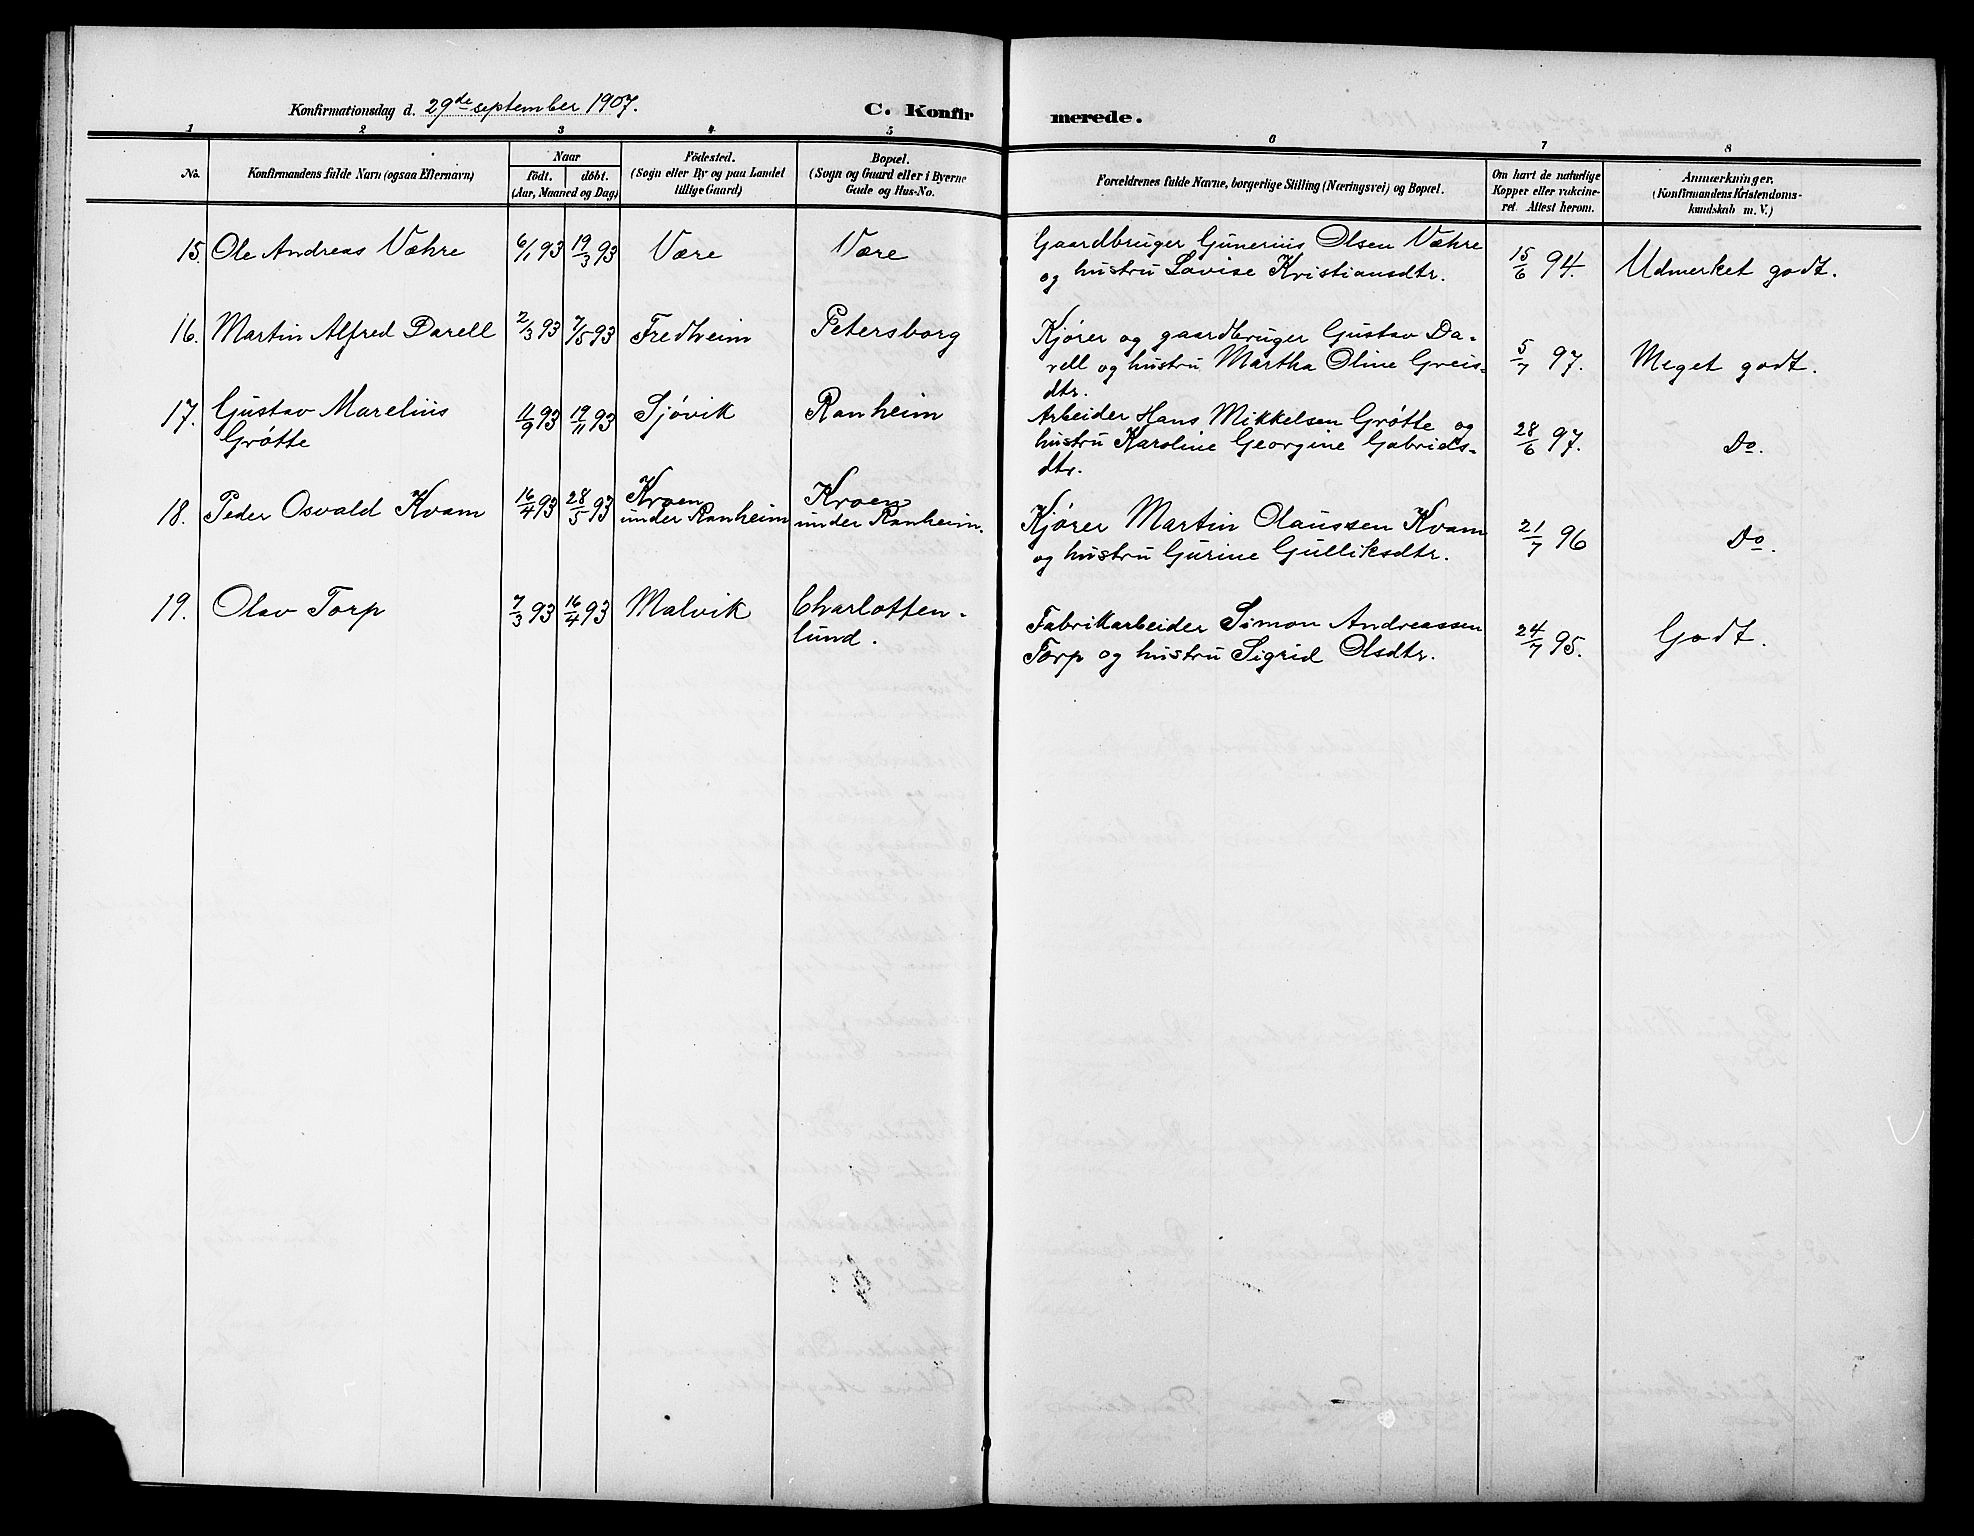 Konfirmationsdag d. 29de september 1907.
C. Konfirmerede.
1 2 3 4 5 6 7 8
No.
Konfirmandens fulde Navn (ogsaa Efternavn)
Naar
födt. döbt.
(Aar, Maaned og Dag)
Födested.
(Sogn eller By og paa Landet
tillige Gaard)
Bopæl.
(Sogn og Gaard eller i Byerne
Gade og Hus-No.
Forældrenes fulde Navne, borgerlige Stilling (Næringsvei) og Bopæl.
Om havt de naturlige
Kopper eller vakcine-
ret. Attest herom.
Anmærkninger.
(Konfirmandens Kristendoms-
kundskab m. V.)
15. Ole Andreas Væhre 6/1 93 19/3 93 Være Være
Gaardbruger Gunerius Olsen Væhre
og hustru Lovise Kristiansdtr. 15/6 94. Udmerket godt.
16. Martin Alfred Darell 2/3 93 7/5 93 Fredheim Petersborg
Kjører og gaardbruger Gustav Da-
rell og hustru Martha Oline Greis-
dtr. 5/7 97. Meget godt.
17. Gustav Marelius
Grøtte 11/9 93 19/11 93 Sjøvik Ranheim
Arbeider Hans Mikkelsen Grøtte og
hustru Karoline Georgine Gabriels-
dtr. 28/6 97. Do.
18. Peder Osvald Kvam 16/4 93 28/5 93 Kroen
under Ranheim Kroen
under Ranheim.
Kjører Martin Claussen Kvam
og hustru Gurine Gulliksdtr. 21/7 96 Do.
19. Olav Torp 7/3 93 16/4 93 Malvik Charlotten-
lund.
Fabrikarbeider Simon Andreassen
Torp og hustru Sigrid Olsdtr. 24/7 95. Godt.